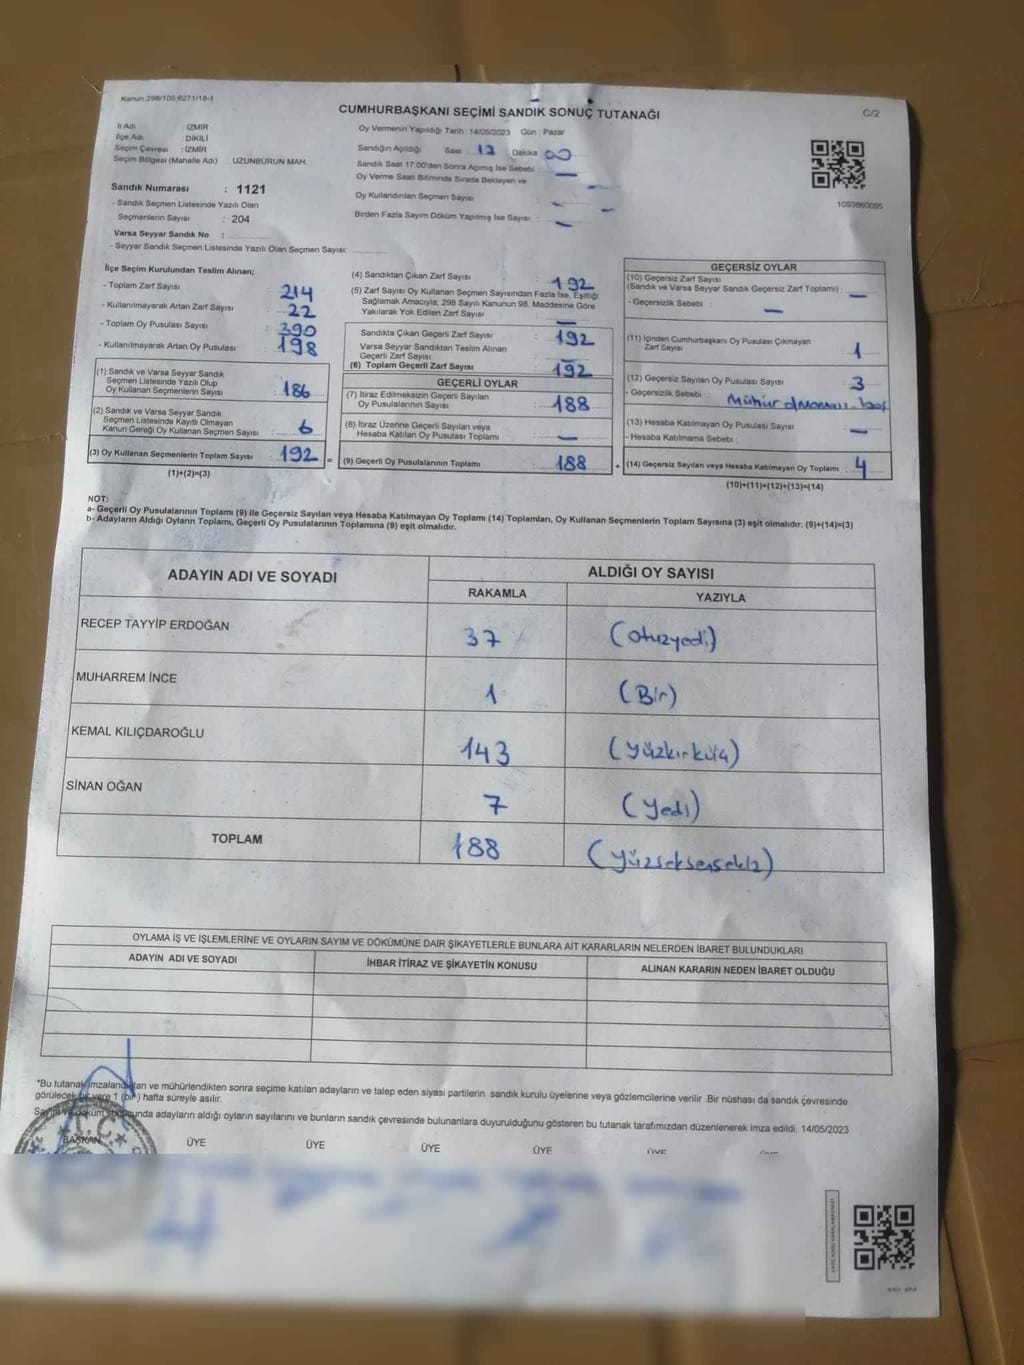 Kanun:298/105;6271/18-1
CUMHURBAŞKANI SEÇİMİ SANDIK SONUÇ TUTANAĞI
C/2
İl Adı : İZMİR
İlçe Adı : DİKİLİ
Seçim Çevresi : İZMİR
Seçim Bölgesi (Mahalle Adı) : UZUNBURUN MAH.
Sandık Numarası : 1121
- Sandık Seçmen Listesinde Yazılı Olan
Seçmenlerin Sayısı : 204
Varsa Seyyar Sandık No :
- Seyyar Sandık Seçmen Listesinde Yazılı Olan Seçmen Sayısı:
Oy Vermenin Yapıldığı Tarih: 14/05/2023 Gün : Pazar
Sandığın Açıldığı Saat 17 Dakika 00
Sandık Saat 17:00'den Sonra Açımış İse Sebebi : —
Oy Verme Saati Bitiminde Sırada Bekleyen ve
Oy Kullandırılan Seçmen Sayısı : —
Birden Fazla Sayım Döküm Yapılmış İse Sayısı : —
1093860095
İlçe Seçim Kurulundan Teslim Alınan;
- Toplam Zarf Sayısı : 214
- Kullanılmayarak Artan Zarf Sayısı : 22
- Toplam Oy Pusulası Sayısı : 390
- Kullanılmayarak Artan Oy Pusulası : 198
(1) Sandık ve Varsa Seyyar Sandık
Seçmen Listesinde Yazılı Olup
Oy Kullanan Seçmenlerin Sayısı : 186
(2) Sandık ve Varsa Seyyar Sandık
Seçmen Listesinde Kayıtlı Olmayan
Kanun Gereği Oy Kullanan Seçmen Sayısı : 6
(3) Oy Kullanan Seçmenlerin Toplam Sayısı : 192
(1)+(2)=(3)
(4) Sandıktan Çıkan Zarf Sayısı : 192
(5) Zarf Sayısı Oy Kullanan Seçmen Sayısından Fazla İse, Eşitliği
Sağlamak Amacıyla; 298 Sayılı Kanunun 98. Maddesine Göre
Yakılarak Yok Edilen Zarf Sayısı : —
Sandıkta Çıkan Geçerli Zarf Sayısı : 192
Varsa Seyyar Sandıktan Teslim Alınan
Geçerli Zarf Sayısı : —
(6) Toplam Geçerli Zarf Sayısı : 192
GEÇERLİ OYLAR
(7) İtiraz Edilmeksizin Geçerli Sayılan
Oy Pusulalarının Sayısı : 188
(8) İtiraz Üzerine Geçerli Sayılan veya
Hesaba Katılan Oy Pusulası Toplamı : —
= (9) Geçerli Oy Pusulalarının Toplamı : 188
GEÇERSİZ OYLAR
(10) Geçersiz Zarf Sayısı
(Sandık ve Varsa Seyyar Sandık Geçersiz Zarf Toplamı) : —
- Geçersizlik Sebebi : —
(11) İçinden Cumhurbaşkanı Oy Pusulası Çıkmayan
Zarf Sayısı : 1
(12) Geçersiz Sayılan Oy Pusulası Sayısı : 3
- Geçersizlik Sebebi : Mühür
(13) Hesaba Katılmayan Oy Pusulası Sayısı : —
- Hesaba Katılmama Sebebi :
+ (14) Geçersiz Sayılan veya Hesaba Katılmayan Oy Toplamı : 4
(10)+(11)+(12)+(13)=(14)
NOT:
a- Geçerli Oy Pusulalarının Toplamı (9) ile Geçersiz Sayılan veya Hesaba Katılmayan Oy Toplamı (14) Toplamları, Oy Kullanan Seçmenlerin Toplam Sayısına (3) eşit olmalıdır. (9)+(14)=(3)
b- Adayların Aldığı Oyların Toplamı, Geçerli Oy Pusulalarının Toplamına (9) eşit olmalıdır.
ADAYIN ADI VE SOYADI
ALDIĞI OY SAYISI
RAKAMLA
YAZIYLA
RECEP TAYYİP ERDOĞAN 37 (otuzyedi)
MUHARREM İNCE 1 (Bir)
KEMAL KILIÇDAROĞLU 143 (yüzkırküç)
SİNAN OĞAN 7 (Yedi)
TOPLAM 188 (yüzseksensekiz)
OYLAMA İŞ VE İŞLEMLERİNE VE OYLARIN SAYIM VE DÖKÜMÜNE DAİR ŞİKAYETLERLE BUNLARA AİT KARARLARIN NELERDEN İBARET BULUNDUKLARI
ADAYIN ADI VE SOYADI
İHBAR İTİRAZ VE ŞİKAYETİN KONUSU
ALINAN KARARIN NEDEN İBARET OLDUĞU
*Bu tutanak imzalandıktan ve mühürlendikten sonra seçime katılan adayların ve talep eden siyasi partilerin sandık kurulu üyelerine veya gözlemcilerine verilir .Bir nüshası da sandık çevresinde
görülecek bir yere 1 (bir) hafta süreyle asılır.
Sayım ve döküm sonucunda adayların aldığı oyların sayılarını ve bunların sandık çevresinde bulunanlara duyurulduğunu gösteren bu tutanak tarafımızdan düzenlenerek imza edildi. 14/05/2023
T.C.
BAŞKAN ÜYE ÜYE ÜYE ÜYE ÜYE